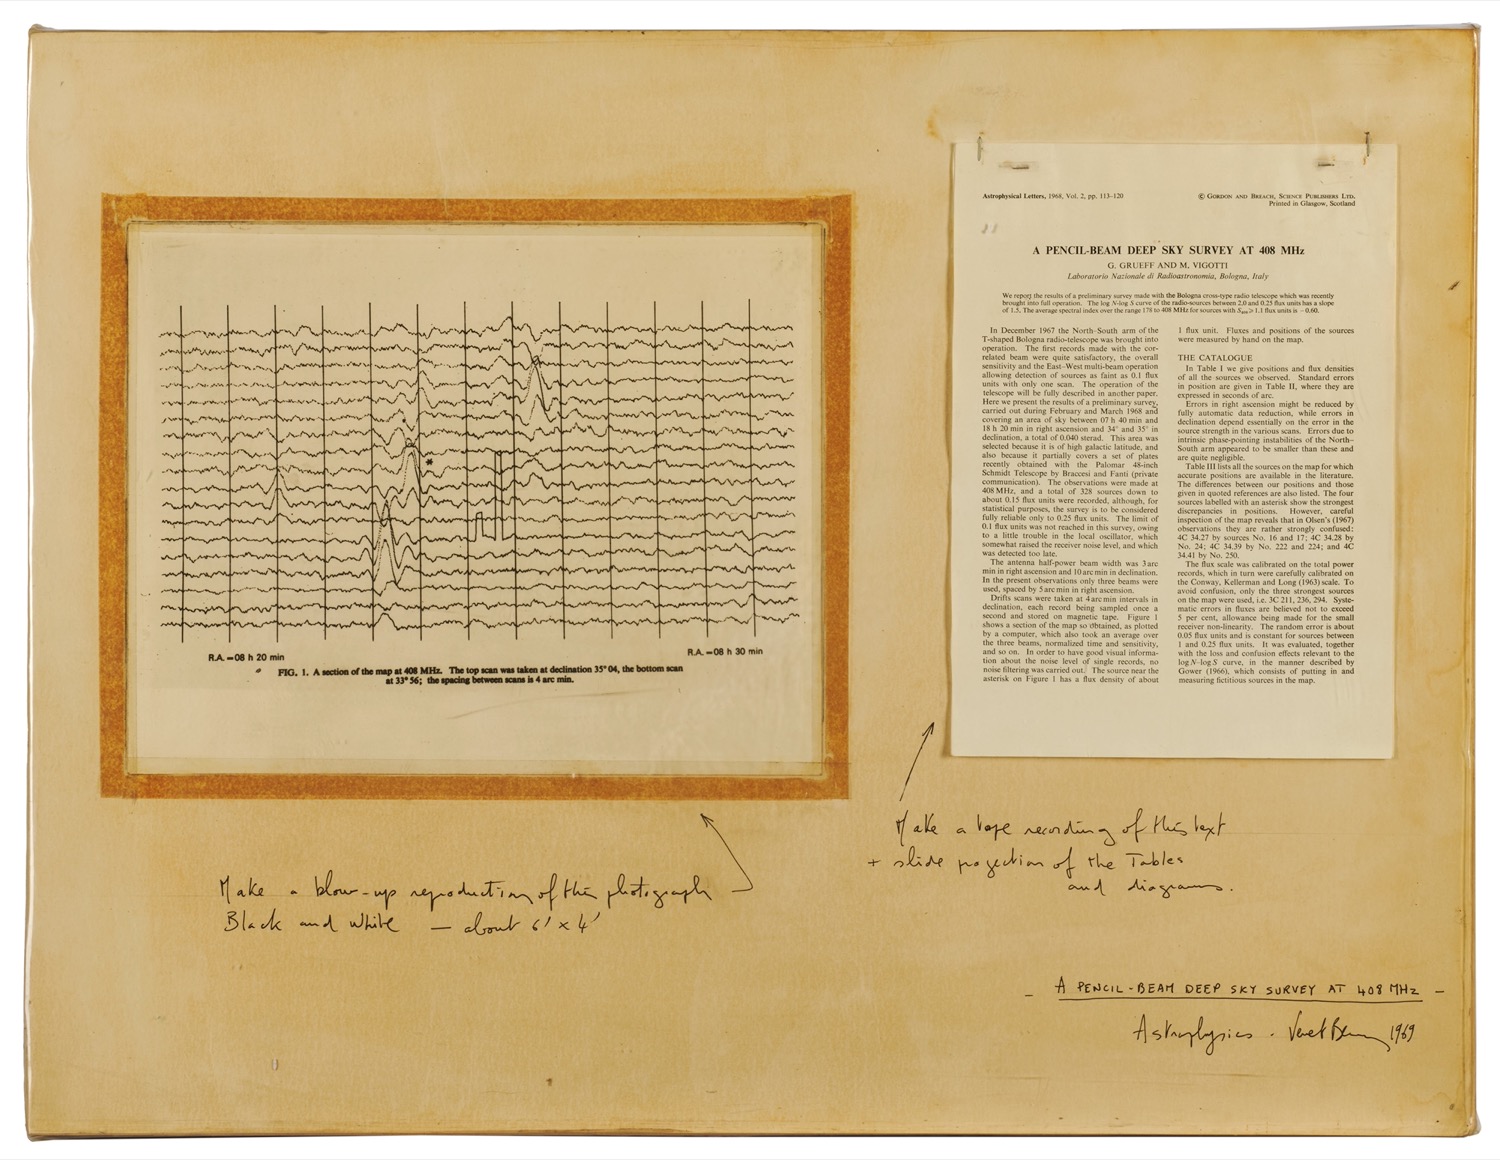 R.A.=08 h 20 min
R.A.=08 h 30 min
FIG. 1. A section of the map at 408 MHz. The top scan was taken at declination 35° 04, the bottom scan
at 33° 56; the spacing between scans is 4 arc min.
Make a blow-up reproduction of this photograph
Black and White — about 6' x 4'
Astrophysical Letters, 1968, Vol. 2, pp. 113–120
© GORDON AND BREACH, SCIENCE PUBLISHERS LTD.
Printed in Glasgow, Scotland
A PENCIL-BEAM DEEP SKY SURVEY AT 408 MHz
G. GRUEFF AND M. VIGOTTI
Laboratorio Nazionale di Radioastronomia, Bologna, Italy
We report the results of a preliminary survey made with the Bologna cross-type radio telescope which was recently
brought into full operation. The log N-log S curve of the radio-sources between 2.0 and 0.25 flux units has a slope
of 1.5. The average spectral index over the range 178 to 408 MHz for sources with S₄₀₈ ⩾ 1.1 flux units is −0.60.
In December 1967 the North–South arm of the
T-shaped Bologna radio-telescope was brought into
operation. The first records made with the cor-
related beam were quite satisfactory, the overall
sensitivity and the East–West multi-beam operation
allowing detection of sources as faint as 0.1 flux
units with only one scan. The operation of the
telescope will be fully described in another paper.
Here we present the results of a preliminary survey,
carried out during February and March 1968 and
covering an area of sky between 07 h 40 min and
18 h 20 min in right ascension and 34° and 35° in
declination, a total of 0.040 sterad. This area was
selected because it is of high galactic latitude, and
also because it partially covers a set of plates
recently obtained with the Palomar 48-inch
Schmidt Telescope by Braccesi and Fanti (private
communication). The observations were made at
408 MHz, and a total of 328 sources down to
about 0.15 flux units were recorded, although, for
statistical purposes, the survey is to be considered
fully reliable only to 0.25 flux units. The limit of
0.1 flux units was not reached in this survey, owing
to a little trouble in the local oscillator, which
somewhat raised the receiver noise level, and which
was detected too late.
The antenna half-power beam width was 3 arc
min in right ascension and 10 arc min in declination.
In the present observations only three beams were
used, spaced by 5 arc min in right ascension.
Drifts scans were taken at 4 arc min intervals in
declination, each record being sampled once a
second and stored on magnetic tape. Figure 1
shows a section of the map so obtained, as plotted
by a computer, which also took an average over
the three beams, normalized time and sensitivity,
and so on. In order to have good visual informa-
tion about the noise level of single records, no
noise filtering was carried out. The source near the
asterisk on Figure 1 has a flux density of about
1 flux unit. Fluxes and positions of the sources
were measured by hand on the map.
THE CATALOGUE
In Table I we give positions and flux densities
of all the sources we observed. Standard errors
in position are given in Table II, where they are
expressed in seconds of arc.
Errors in right ascension might be reduced by
fully automatic data reduction, while errors in
declination depend essentially on the error in the
source strength in the various scans. Errors due to
intrinsic phase-pointing instabilities of the North–
South arm appeared to be smaller than these and
are quite negligible.
Table III lists all the sources on the map for which
accurate positions are available in the literature.
The differences between our positions and those
given in quoted references are also listed. The four
sources labelled with an asterisk show the strongest
discrepancies in positions. However, careful
inspection of the map reveals that in Olsen's (1967)
observations they are rather strongly confused:
4C 34.27 by sources No. 16 and 17; 4C 34.28 by
No. 24; 4C 34.39 by No. 222 and 224; and 4C
34.41 by No. 250.
The flux scale was calibrated on the total power
records, which in turn were carefully calibrated on
the Conway, Kellerman and Long (1963) scale. To
avoid confusion, only the three strongest sources
on the map were used, i.e. 3C 211, 236, 294. Syste-
matic errors in fluxes are believed not to exceed
5 per cent, allowance being made for the small
receiver non-linearity. The random error is about
0.05 flux units and is constant for sources between
1 and 0.25 flux units. It was evaluated, together
with the loss and confusion effects relevant to the
log N–log S curve, in the manner described by
Gower (1966), which consists of putting in and
measuring fictitious sources in the map.
Make a tape recording of this text
+ slide projection of the Tables
and diagrams.
– A PENCIL-BEAM DEEP SKY SURVEY AT 408 MHz –
Astrophysics . Venet 1969